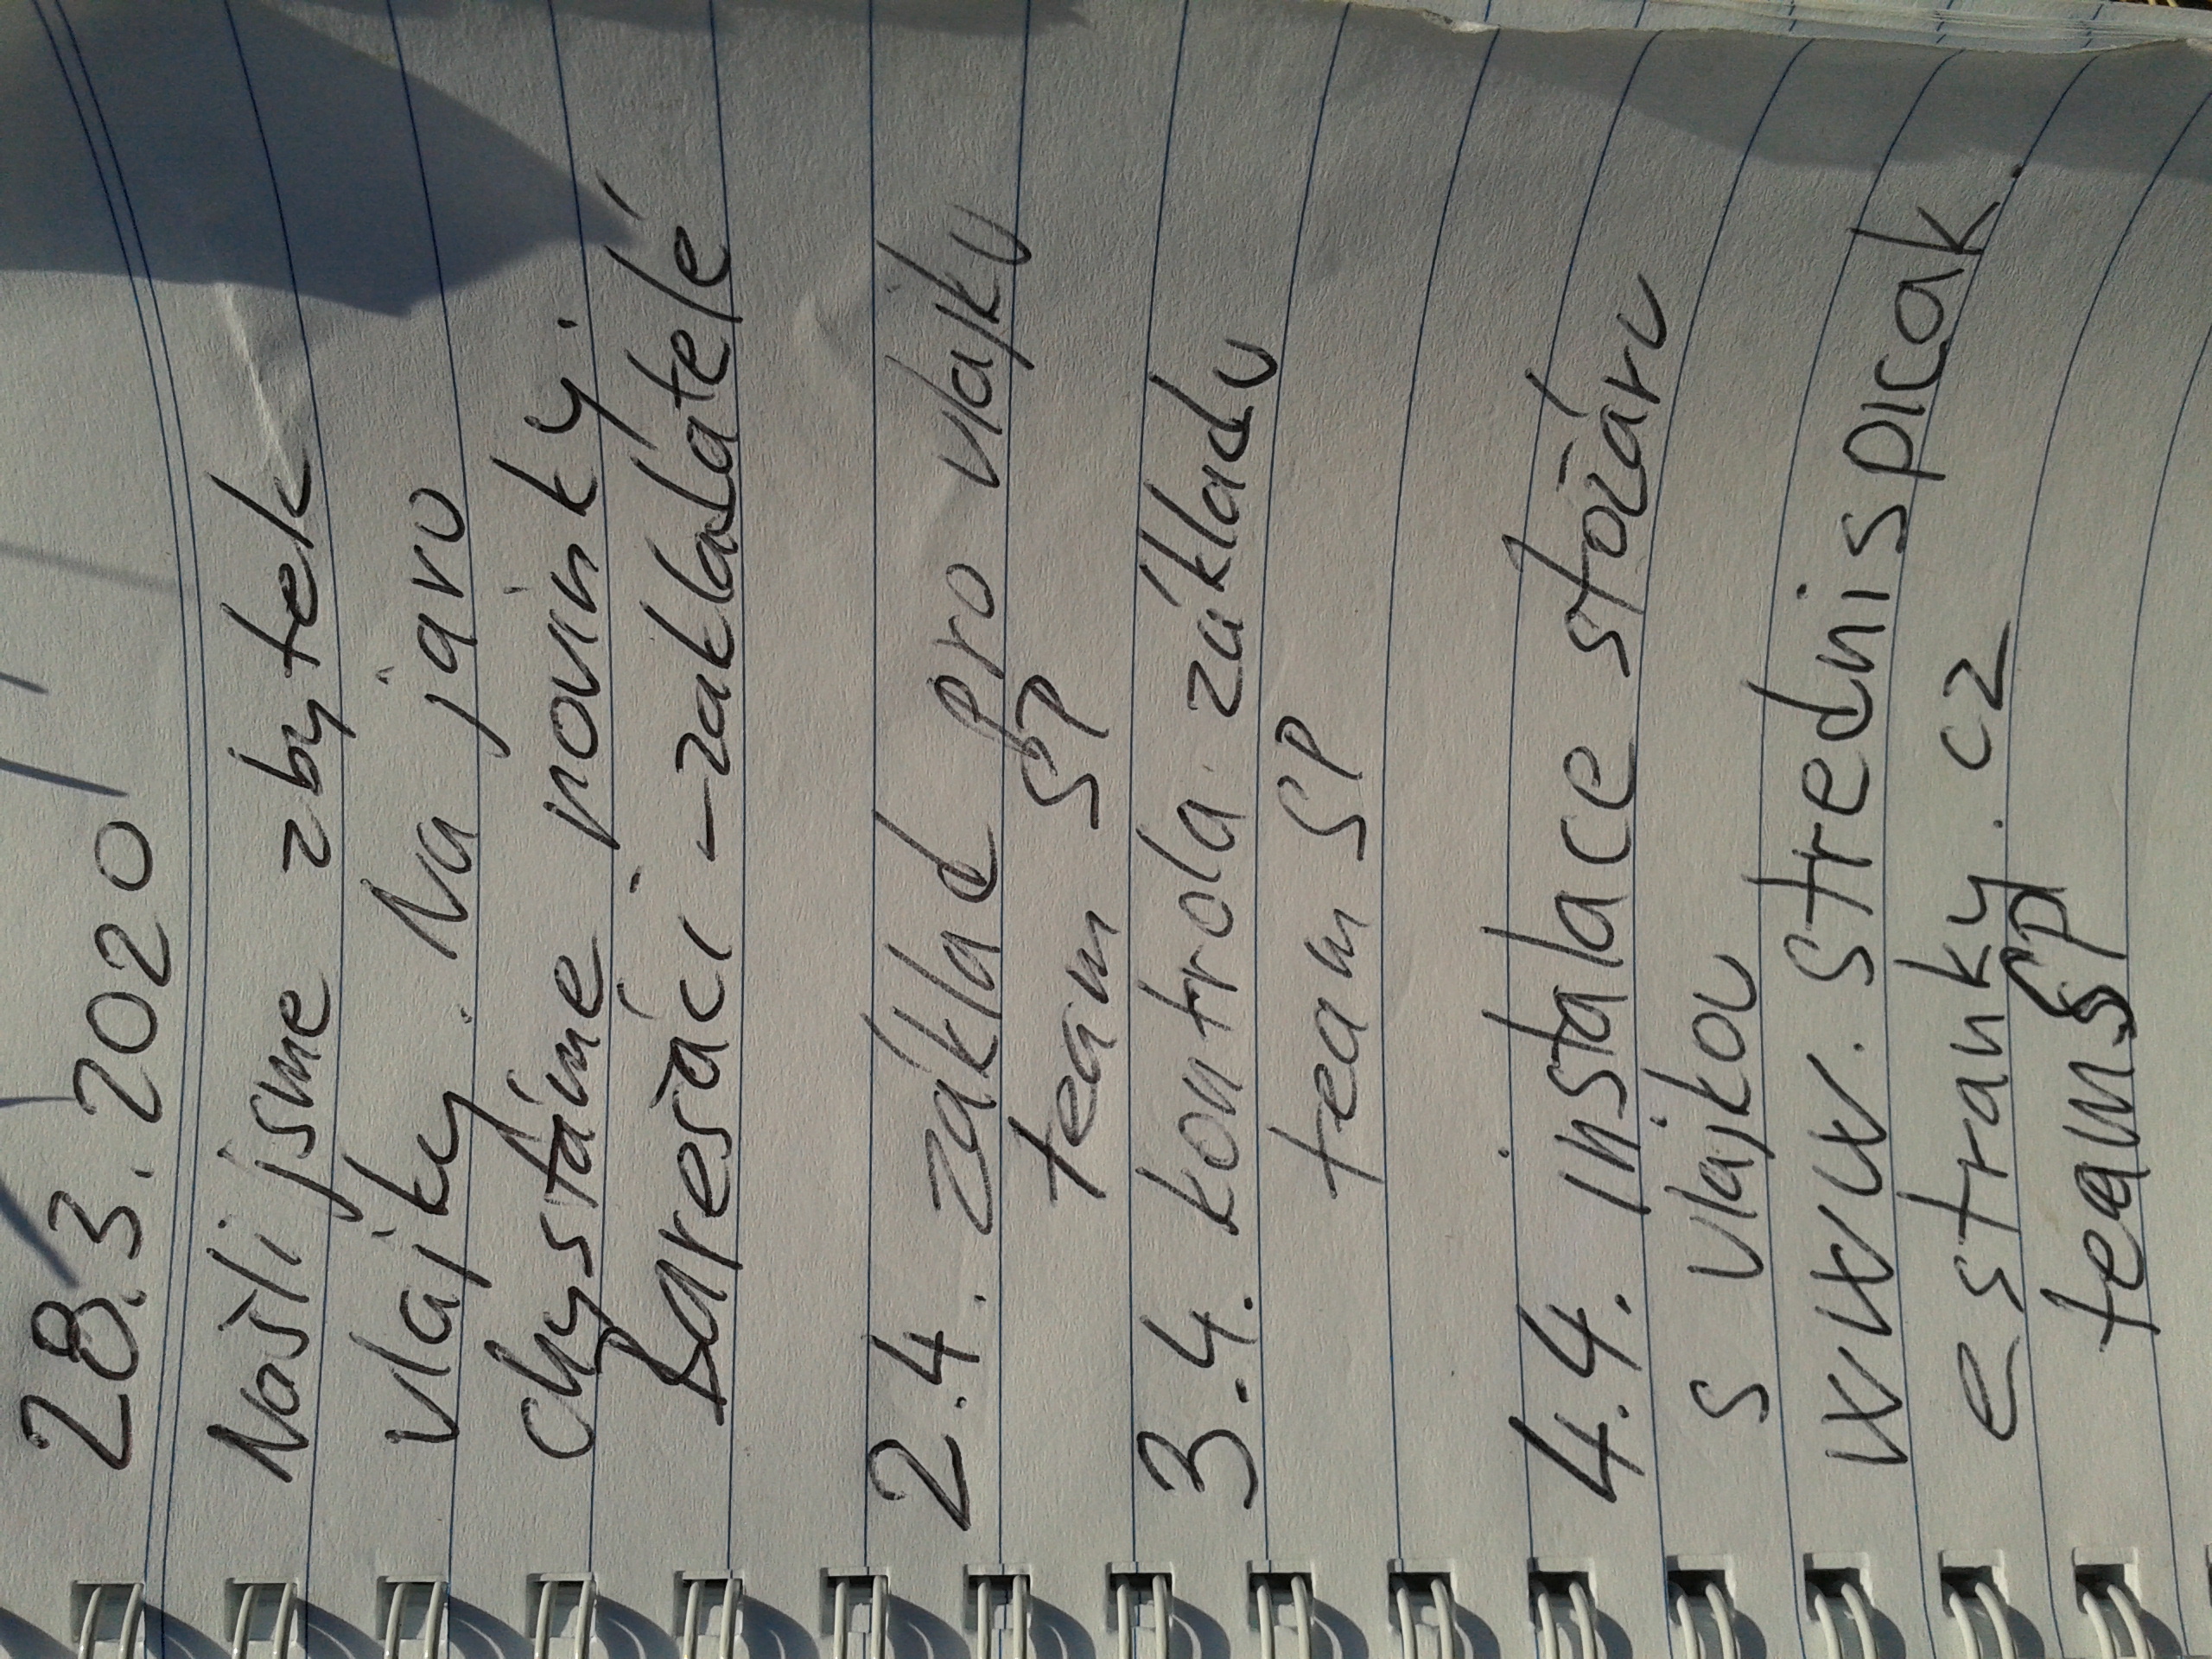 28.3.2020
Našli jsme zbytek
vlajky. Na jaru
chystáme novinky.
Barešáci - zakladatelé
2.4. základ pro vlajku
team SP
3.4. kontrola základu
team SP
4.4. instalace stožáru
s vlajkou
www.strednispicak.
estranky.cz
team SP